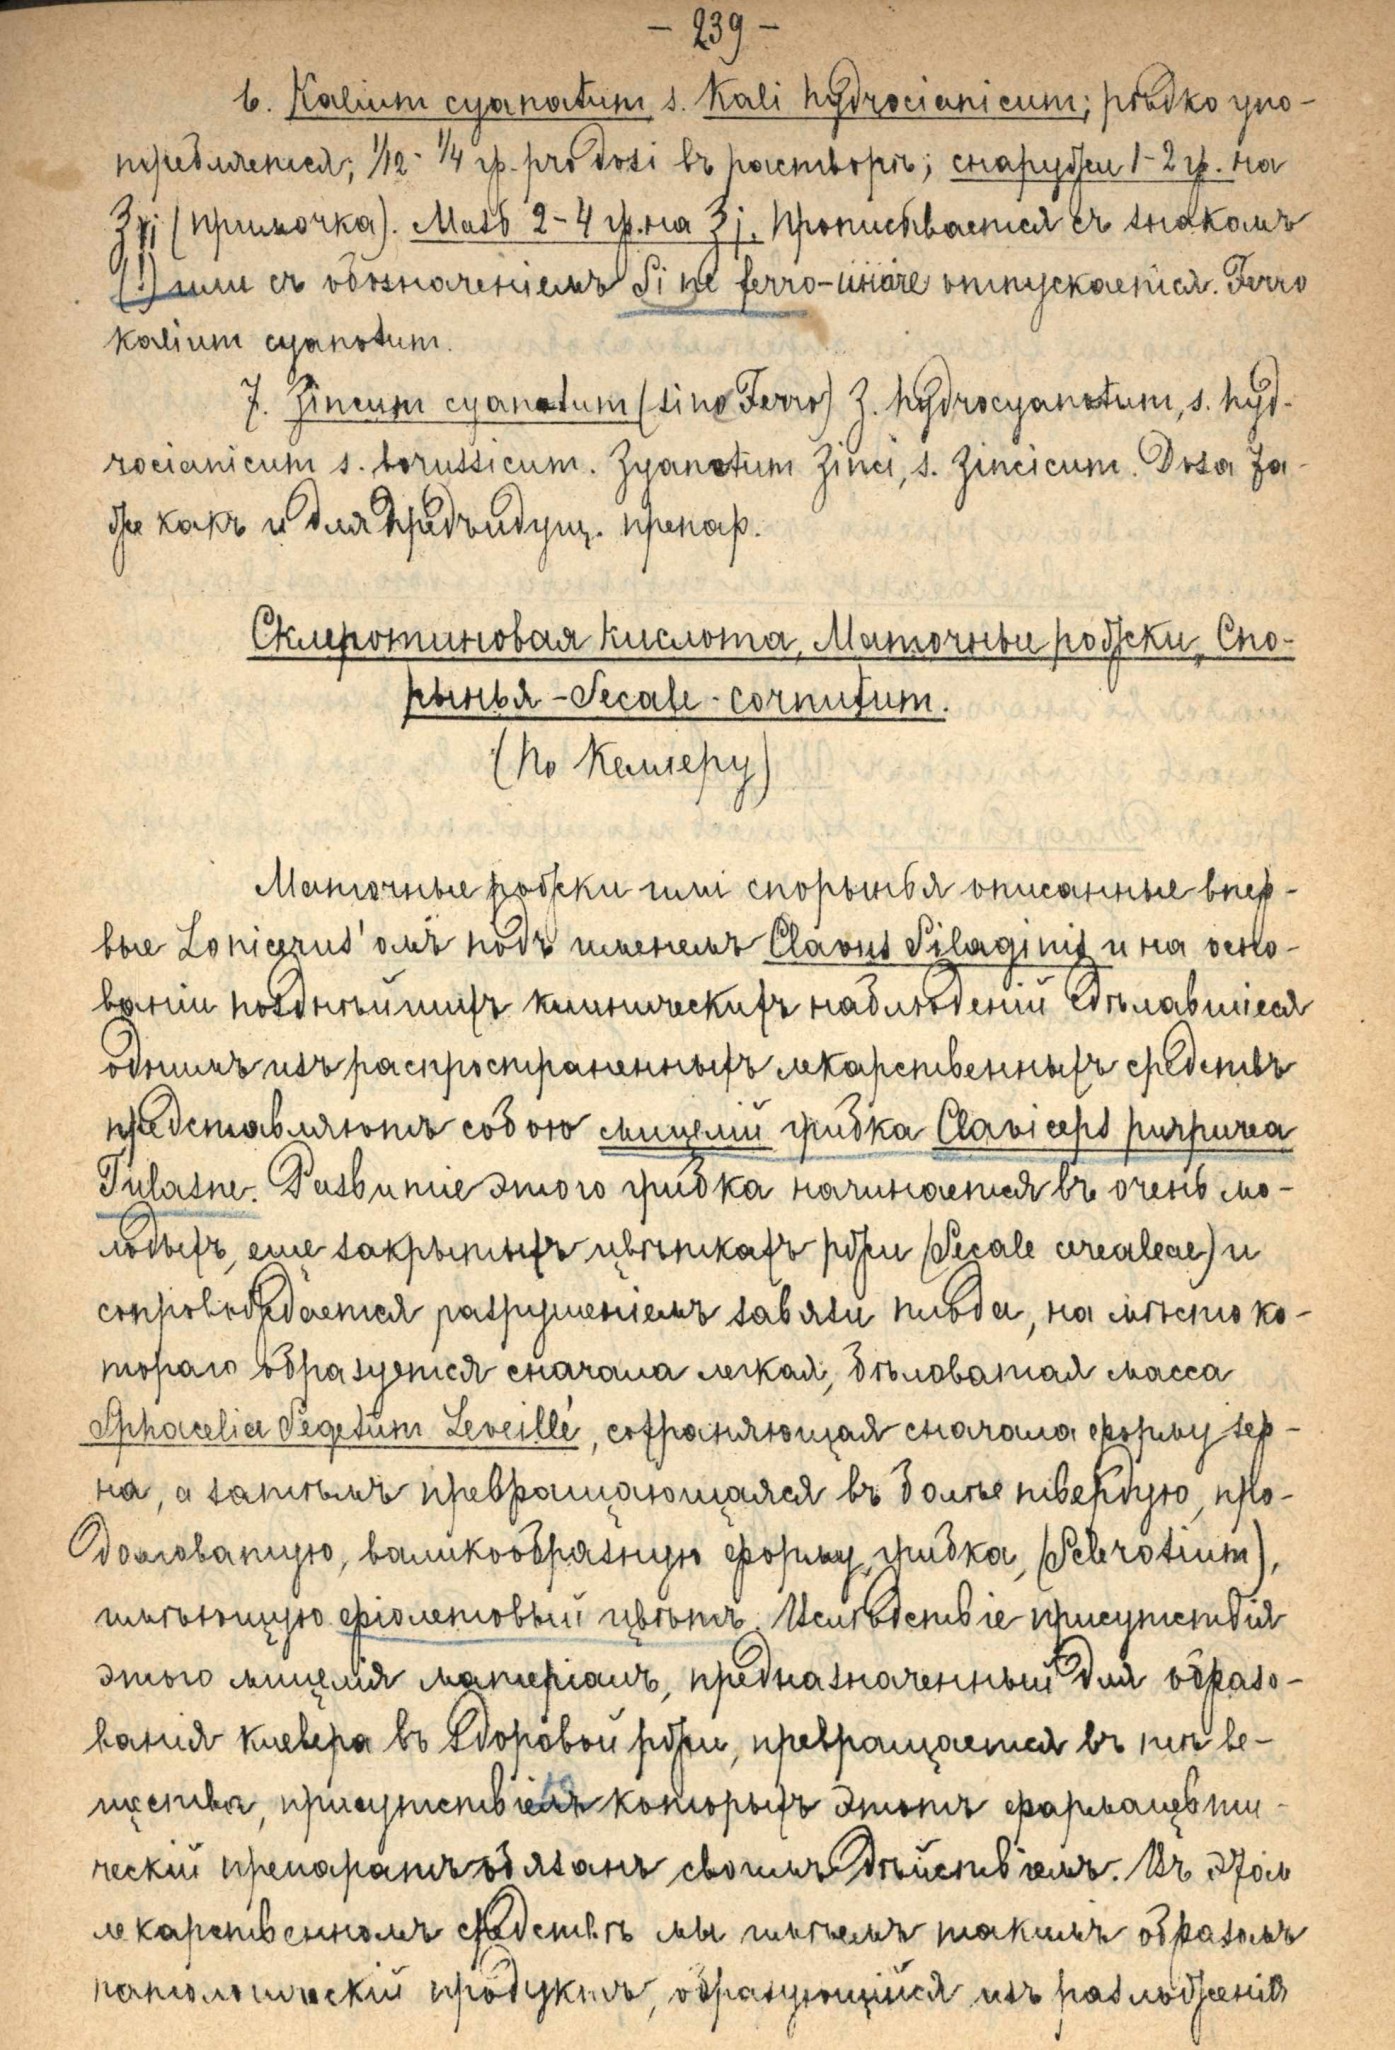 — 239 —
6. Kalium cyanatum s. Kali hydrocianicum; рѣдко упо-
требляется; 1/12 - 1/4 гр. pro dosi въ растворѣ; снаружи 1-2 гр. на
(примочка). Мазь 2-4 гр. на ʒj. Прописывается съ знакомъ
(!) или съ обозначеніемъ Sine ferro-иначе отпускается. Ferro
kalium cyanatum.
7. Zincum cyanatum (sino Ferro) Z. hydrocyanatum, s. hyd-
rocianicum s. borussicum. Zyanatum Zinci, s. Zincicum. Доза та-
же какъ и для предъидущ. препар.
Склеротиновая кислота, Маточные рожки, Спо-
рынья - Secale - cornutum.
(По Келлеру)
Маточные рожки или спорынья описанные впер-
вые Lonicerus'омъ подъ именемъ Clavus Silaginis и на осно-
ваніи позднѣйшихъ клиническихъ наблюденій сдѣлавшіеся
однимъ изъ распространенныхъ лекарственныхъ средствъ
представляютъ собою мицелій грибка Claviceps purpurea
Tulasne. Развитіе этого грибка начинается въ очень мо-
лодыхъ, еще закрытыхъ цвѣткахъ ржи (Secale cerealeae) и
сопровождается разрушеніемъ завязи плода, на мѣсто ко-
тораго образуется сначала легкая, бѣловатая масса
Sphacelia Segetum Leveillé, сохраняющая сначала форму зер-
на, а затѣмъ превращающаяся въ болѣе твердую, про-
долговатую, валикообразную форму грибка, (Sclerotium),
имѣющую фіолетовый цвѣтъ. Вслѣдствіе присутствія
этого мицелія матеріалъ, предназначенный для образо-
ванія клевера въ здоровой ржи, превращается въ тѣ ве-
щества, которыхъ этотъ фармацевти-
ческій препаратъ обязанъ своимъ дѣйствіемъ. Въ этом
лекарственномъ средствѣ мы имѣемъ такимъ образомъ
патологическій продуктъ, образующійся изъ разложенія